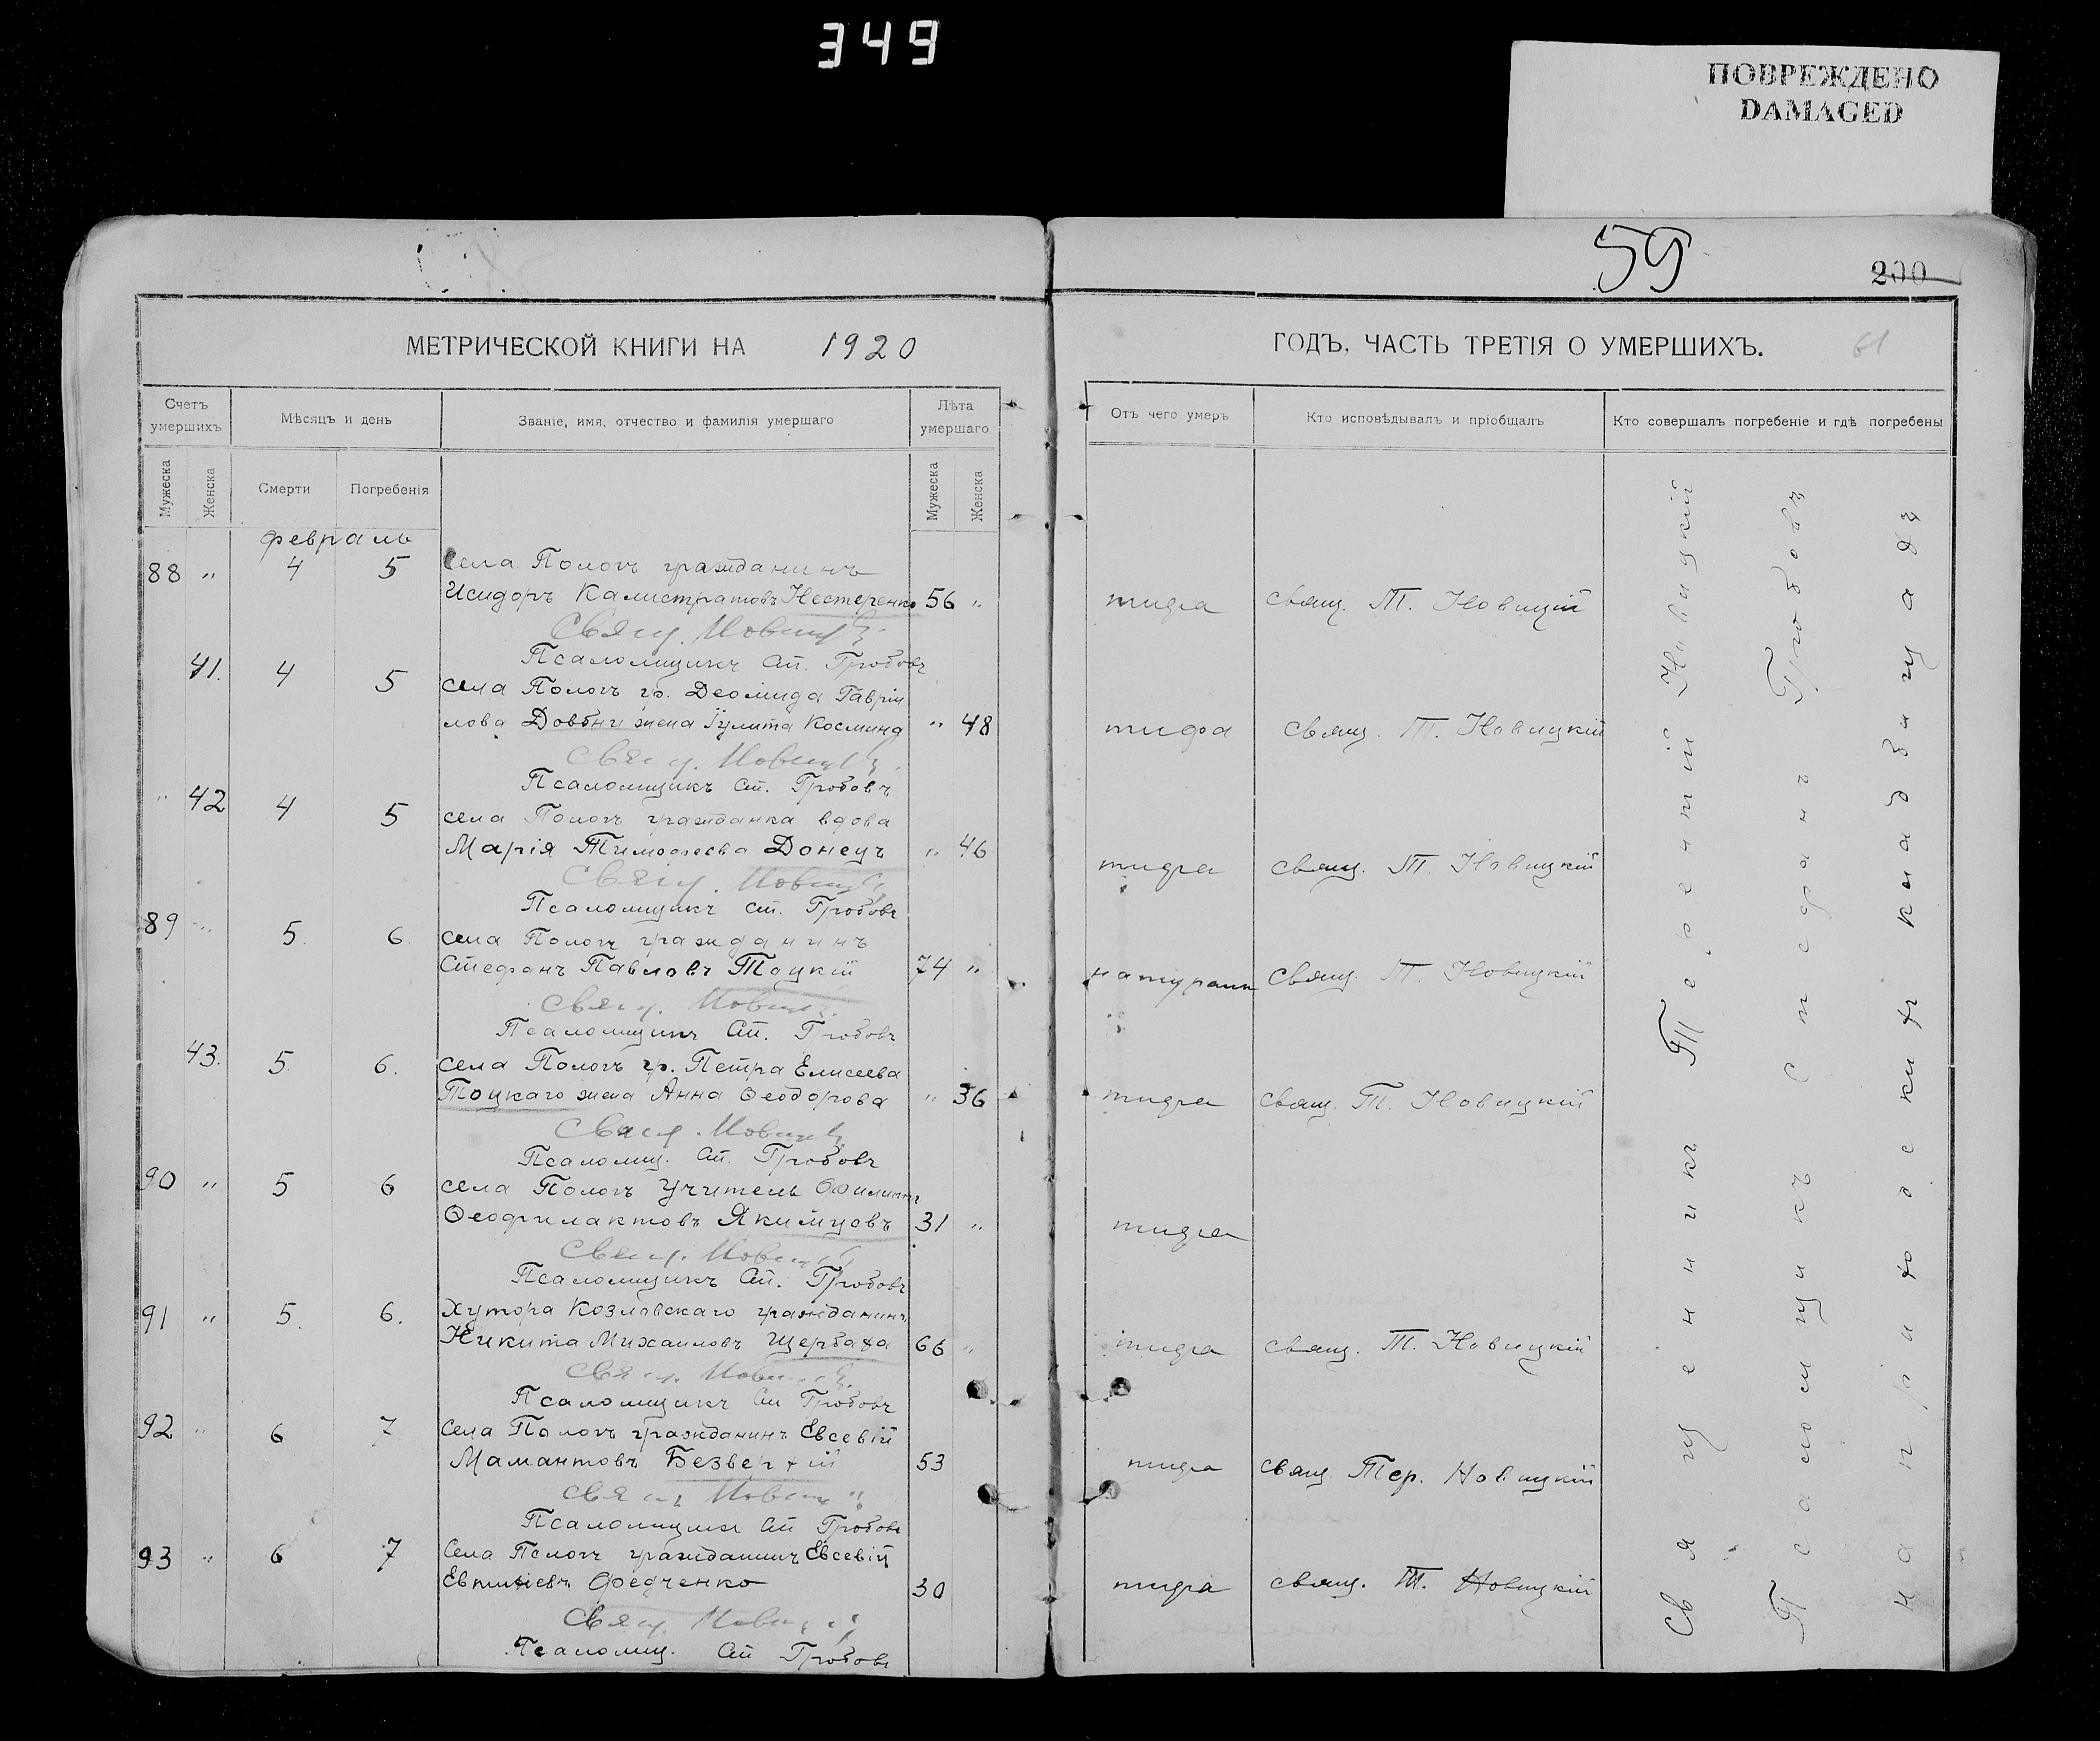 349
ПОВРЕЖДЕНО
DAMAGED
59
200
МЕТРИЧЕСКОЙ КНИГИ НА 1920
ГОДЪ, ЧАСТЬ ТРЕТІЯ О УМЕРШИХЪ.
61
Счетъ умершихъ
Мѣсяцъ и день
Званіе, имя, отчество и фамилія умершаго
Лѣта умершаго
Отъ чего умеръ
Кто исповѣдывалъ и пріобщалъ
Кто совершалъ погребеніе и гдѣ погребены
Мужеска
Женска
Смерти
Погребенія
Мужеска
Женска
февраль
88 " 4 5 Села Пологъ гражданинъ
Исидоръ Калистратовъ Нестеренко 56 " тифа свящ. Т. Новицкій
Свящ. Новицкій
Псаломщикъ Ст. Гробовъ
41. 4 5 села Пологъ гр. Деомида Гаврiи
лова Довбни жена Іулита Космина " 48 тифа свящ. Т. Новицкій
Свящ. Новицкій
Псаломщикъ Ст. Гробовъ
" 42 4 5 села Пологъ гражданка вдова
Марія Тимофеева Донецъ " 46 тифа свящ. Т. Новицкій
Свящ. Новицкій
Псаломщикъ Ст. Гробовъ
89 " 5. 6. села Пологъ гражданинъ
Стефанъ Павловъ Тоцкій 74 " натуральн свящ. Т. Новицкій
Свящ. Новицкій
Псаломщикъ Ст. Гробовъ
43. 5. 6. села Пологъ гр. Петра Елисеева
Тоцкаго жена Анна Ѳеодорова " 36 тифа свящ. Т. Новицкій
Свящ. Новицкій
Псаломщ. Ст. Гробовъ
90 " 5 6 села Пологъ учитель Филиппъ
Ѳеофилактовъ Якимцовъ 31 " тифа
Свящ. Новицкій
Псаломщикъ Ст. Гробовъ
91 " 5. 6. Хутора Козловскаго гражданинъ
Никита Михаиловъ Щербаха 66 " тифа свящ. Т. Новицкій
Свящ. Новицкій
Псаломщикъ Ст Гробовъ
92 " 6 7 Села Пологъ гражданинъ Евсевій
Мамантовъ Безверхій 53 тифа свящ. Тер. Новицкій
Свящ Новицкій
Псаломщикъ Ст Гробовъ
93 " 6 7 Села Пологъ гражданинъ Евсевій
Евтихіевъ Федченко 30 тифа свящ. Т. Новицкій
Свящ. Новицкій
Псаломщ. Ст Гробовъ
Священникъ Терентій Новицкій
Псаломщикъ Стефанъ Гробовъ
на приходскихъ кладбищахъ